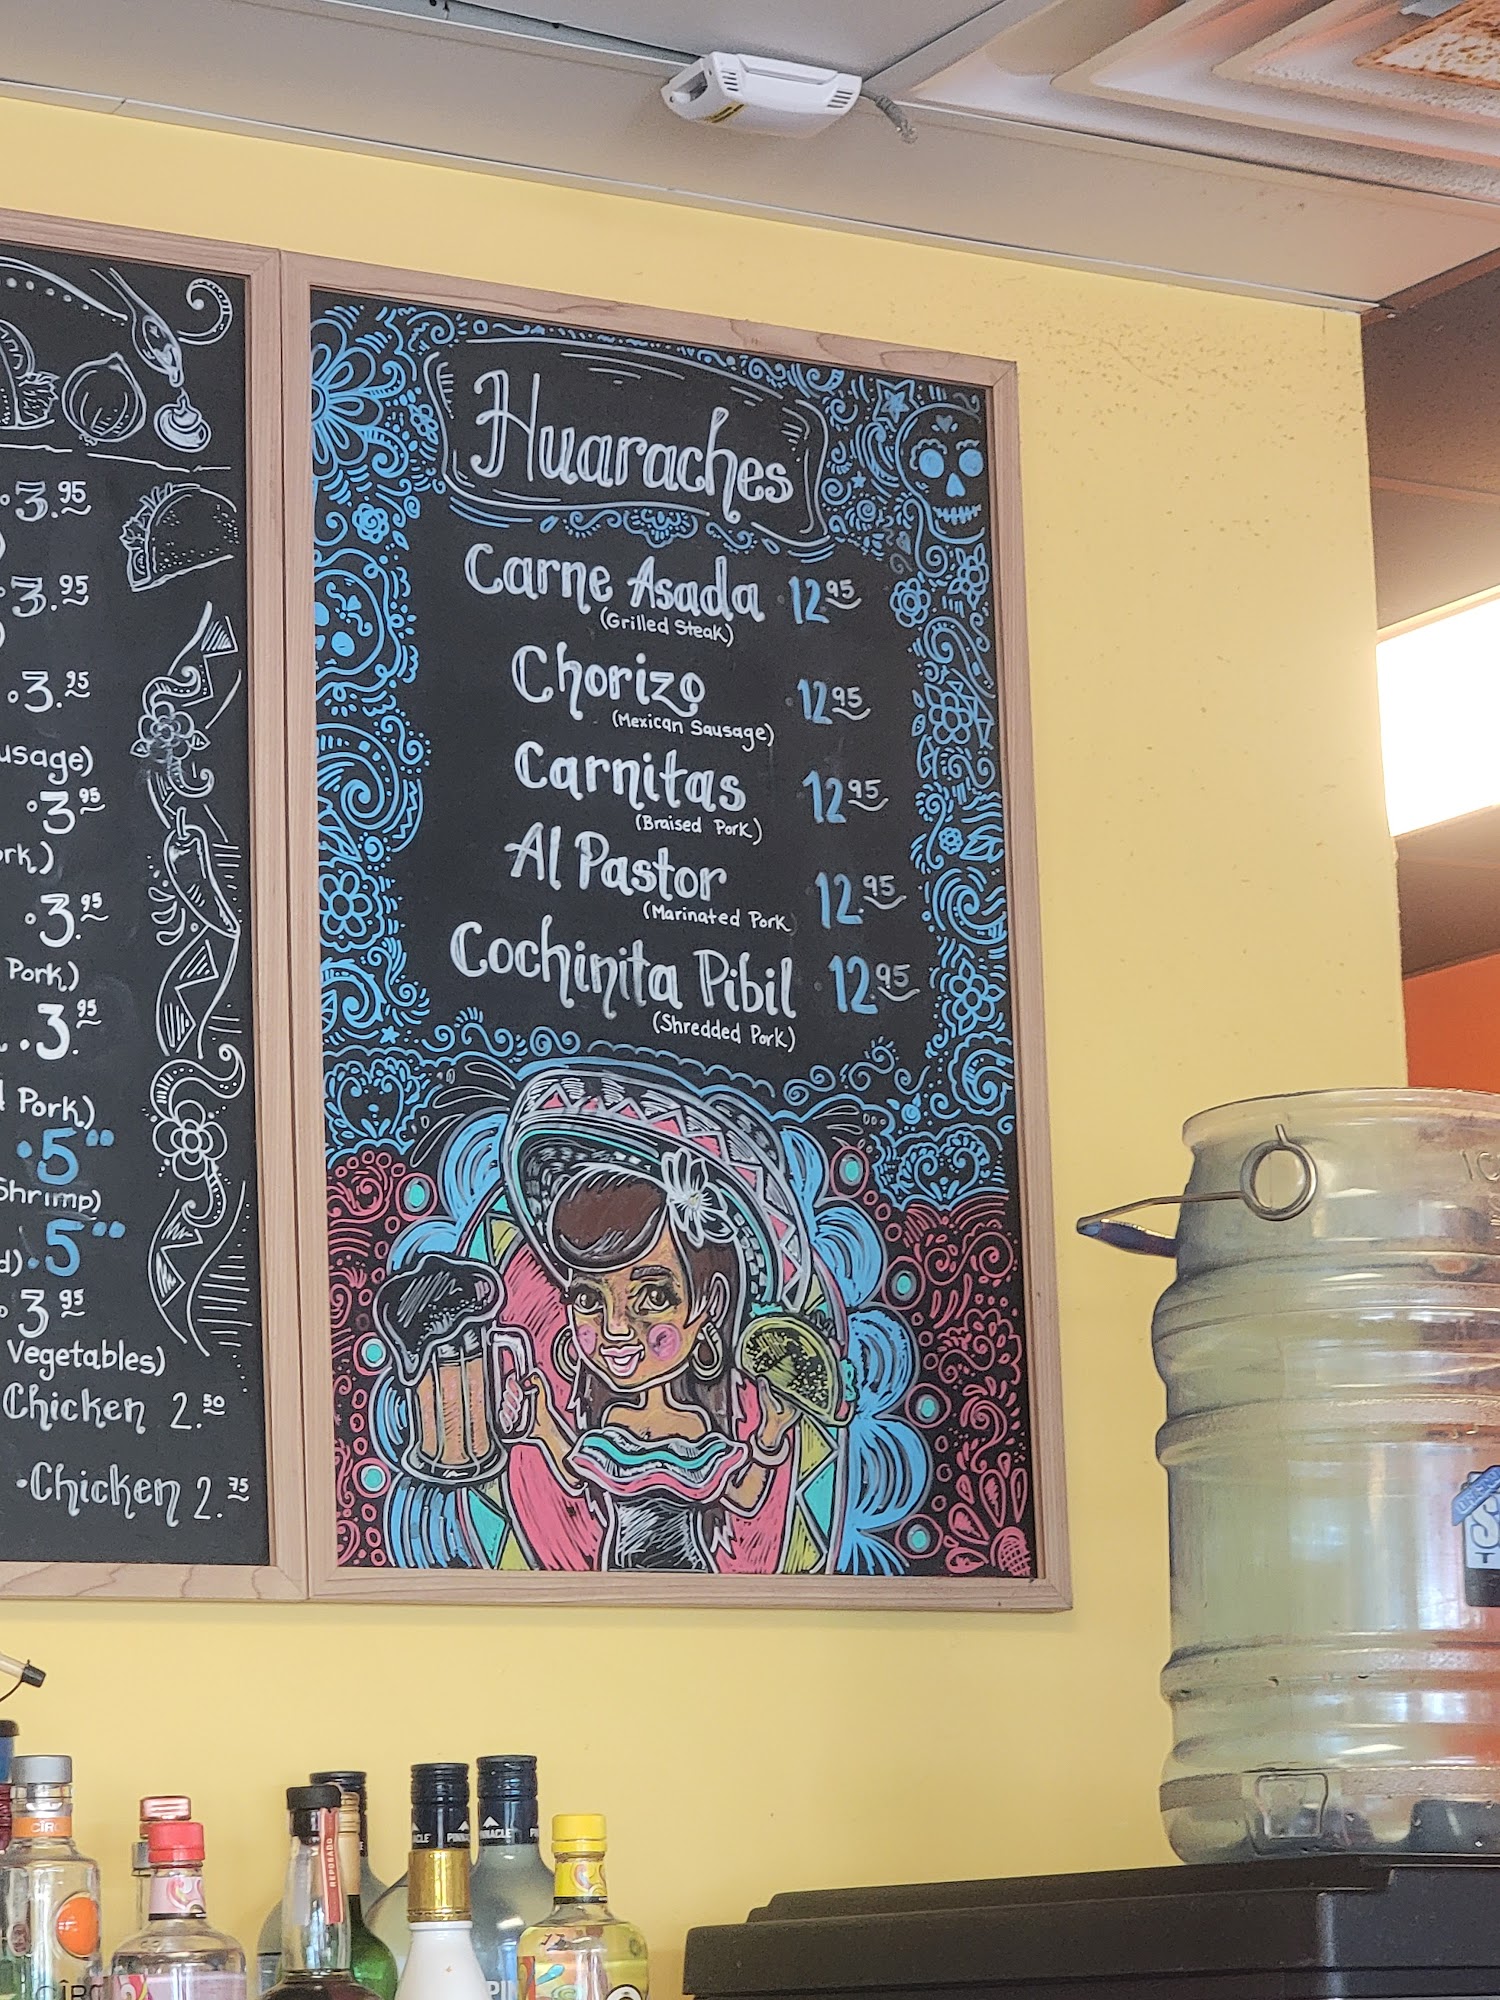 3.95
3.95
3.95
usage)
3.95
ork)
3.95
Pork)
3.95
Pork)
5
Shrimp)
5
3.95
Vegetables)
Chicken 2.50
Chicken 2.75
Huaraches
Carne Asada 12.95
(Grilled Steak)
Chorizo 12.95
(Mexican Sausage)
Carnitas 12.95
(Braised Pork)
Al Pastor 12.95
(Marinated Pork)
Cochinita Pibil 12.95
(Shredded Pork)
REPOSADO
PINNACLE
CÎROC